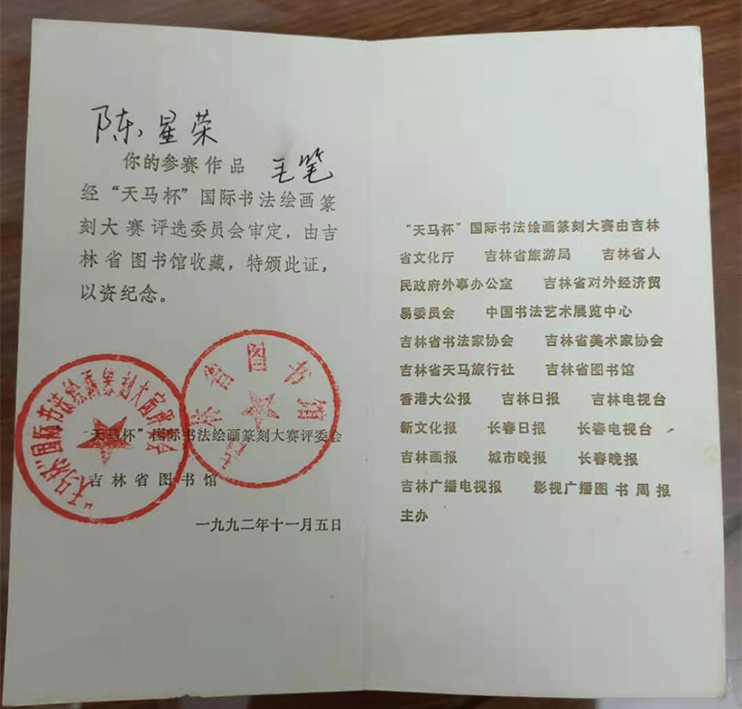 陈星荣
你的参赛作品 毛笔
经“天马杯”国际书法绘画篆
刻大赛评选委员会审定，由吉
林省图书馆收藏，特颁此证，
以资纪念。
“天马杯”国际书法绘画篆刻大赛评委会
吉林省图书馆
一九九二年十一月五日
“天马杯”国际书法绘画篆刻大赛由吉林
省文化厅 吉林省旅游局 吉林省人
民政府外事办公室 吉林省对外经济贸
易委员会 中国书法艺术展览中心
吉林省书法家协会 吉林省美术家协会
吉林省天马旅行社 吉林省图书馆
香港大公报 吉林日报 吉林电视台
新文化报 长春日报 长春电视台
吉林画报 城市晚报 长春晚报
吉林广播电视报 影视广播图书周报
主办